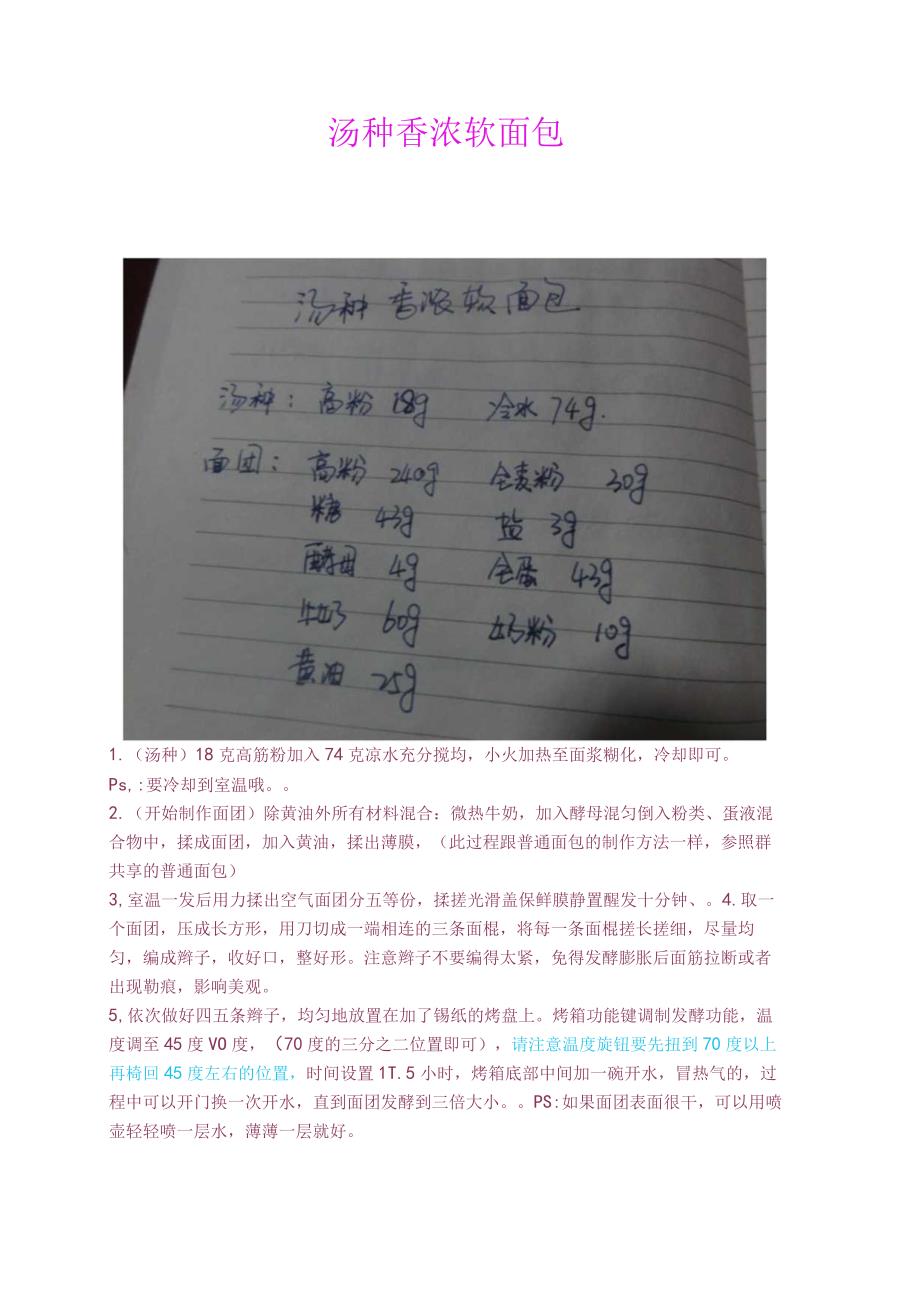 汤种香浓软面包
汤种香浓软面包
汤种：高粉 18g 冷水 74g.
面团：高粉 240g 全麦粉 30g
糖 43g 盐 3g
酵母 4g 全蛋 43g
牛奶 60g 奶粉 10g
黄油 25g
1.（汤种）18克高筋粉加入74克凉水充分搅均，小火加热至面浆糊化，冷却即可。
Ps,:要冷却到室温哦。。
2.（开始制作面团）除黄油外所有材料混合：微热牛奶，加入酵母混匀倒入粉类、蛋液混
合物中，揉成面团，加入黄油，揉出薄膜，（此过程跟普通面包的制作方法一样，参照群
共享的普通面包）
3,室温一发后用力揉出空气面团分五等份，揉搓光滑盖保鲜膜静置醒发十分钟、。4.取一
个面团，压成长方形，用刀切成一端相连的三条面棍，将每一条面棍搓长搓细，尽量均
匀，编成辫子，收好口，整好形。注意辫子不要编得太紧，免得发酵膨胀后面筋拉断或者
出现勒痕，影响美观。
5,依次做好四五条辫子，均匀地放置在加了锡纸的烤盘上。烤箱功能键调制发酵功能，温
度调至45度V0度，（70度的三分之二位置即可），请注意温度旋钮要先扭到70度以上
再椅回45度左右的位置，时间设置1T.5小时，烤箱底部中间加一碗开水，冒热气的，过
程中可以开门换一次开水，直到面团发酵到三倍大小。。PS:如果面团表面很干，可以用喷
壶轻轻喷一层水，薄薄一层就好。